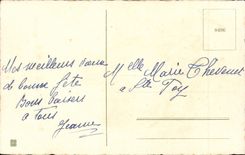 Mes meilleurs vœux
de bonne fête
Bons baisers
a Tous
Jeanne
Melle Marie Thevenet
a Ste Foy